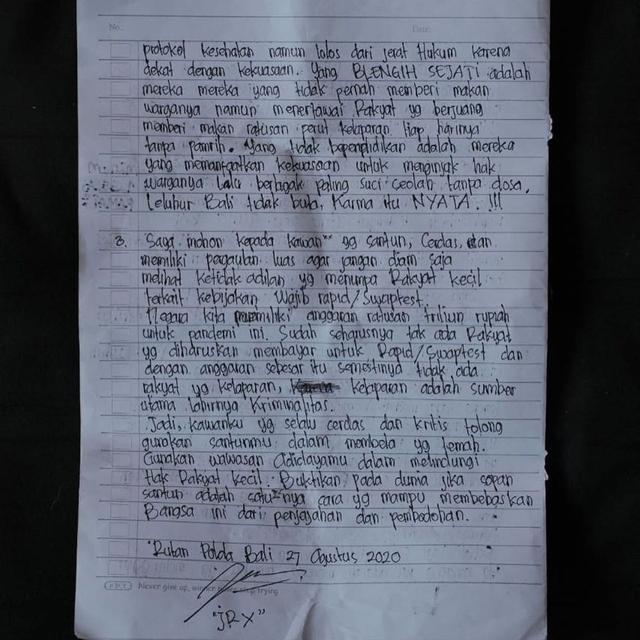 No.
Date:
protokol kesehatan namun lolos dari jerat Hukum karena
dekat dengan kekuasaan. Yang BLENGIH SEJATI adalah
mereka mereka yang tidak pernah memberi makan
warganya namun menertawai Rakyat yg berjuang
memberi makan ratusan perut kelaparan tiap harinya
tanpa pamrih. Yang tidak berpendidikan adalah mereka
yang memanfaatkan kekuasaan untuk menginjak hak
warganya lalu berlagak paling suci seolah tanpa dosa.
Leluhur Bali tidak buta, Karma itu NYATA !!!
3. Saya mohon kepada kawan" yg santun, Cerdas, dan
memiliki pergaulan luas agar jangan diam saja
melihat ketidakadilan yg menimpa Rakyat kecil
terkait kebijakan Wajib rapid/Swabtest.
Negara kita memiliki anggaran ratusan triliun rupiah
untuk pandemi ini. Sudah seharusnya tak ada Rakyat
yg diharuskan membayar untuk Rapid/Swabtest dan
dengan anggaran sebesar itu semestinya tidak ada
rakyat yg kelaparan, kelaparan adalah sumber
utama lahirnya Kriminalitas.
Jadi, kawanku yg selalu cerdas dan kritis tolong
gunakan santunmu dalam membela yg lemah.
Gunakan wawasan Adidayamu dalam melindungi
Hak Rakyat kecil. Buktikan pada dunia jika sopan
santun adalah satu2nya cara yg mampu membebaskan
Bangsa ini dari penjajahan dan pembodohan.
Rutan Polda Bali 27 Agustus 2020
Never give up, winner never stop trying
"JRX"